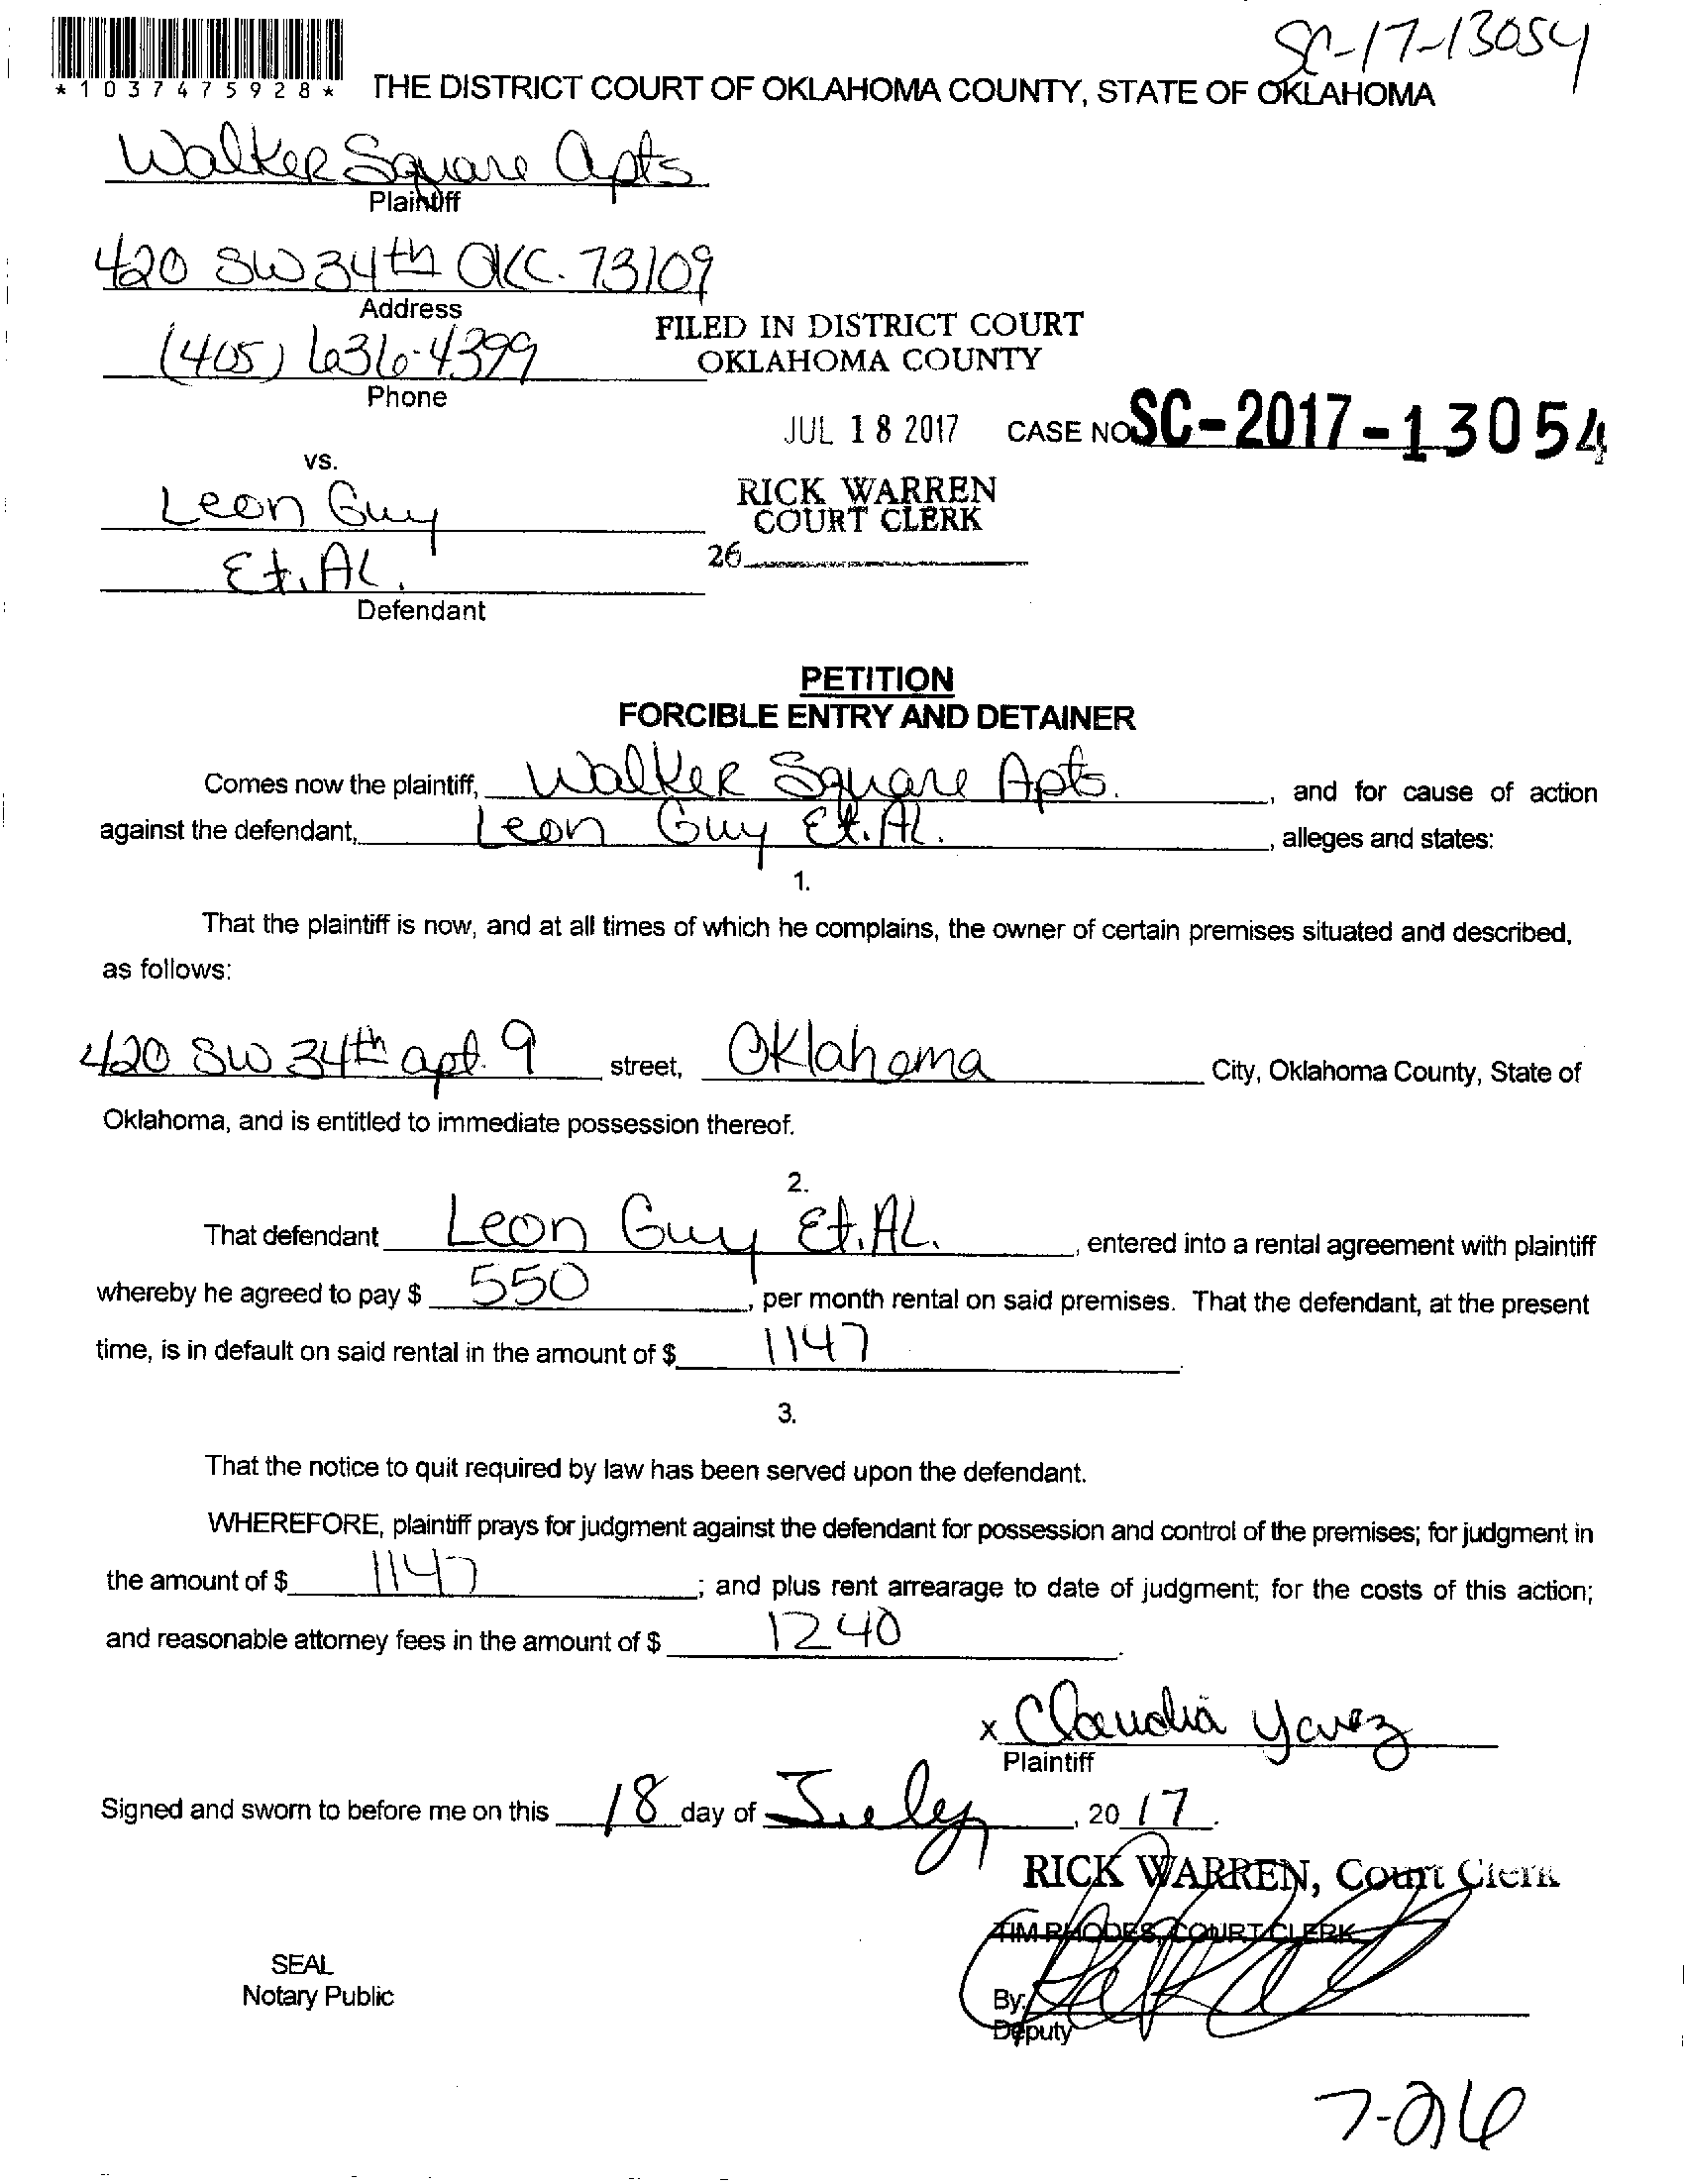 SC-17-13054
*1037475928*
THE DISTRICT COURT OF OKLAHOMA COUNTY, STATE OF OKLAHOMA
Walker Square Apts
Plaintiff
420 SW 34th OKC. 73109
Address
(405) 636-4399
Phone
FILED IN DISTRICT COURT
OKLAHOMA COUNTY
JUL 18 2017
CASE NO. SC-2017-13054
vs.
Leon Guy
RICK WARREN
COURT CLERK
Et. AL.
26
Defendant
PETITION
FORCIBLE ENTRY AND DETAINER
Comes now the plaintiff, Walker Square Apts. , and for cause of action
against the defendant, Leon Guy Et. AL. , alleges and states:
1.
That the plaintiff is now, and at all times of which he complains, the owner of certain premises situated and described,
as follows:
420 SW 34th apt. 9 street, Oklahoma City, Oklahoma County, State of
Oklahoma, and is entitled to immediate possession thereof.
2.
That defendant Leon Guy Et. AL. , entered into a rental agreement with plaintiff
whereby he agreed to pay $ 550 , per month rental on said premises. That the defendant, at the present
time, is in default on said rental in the amount of $ 1147 .
3.
That the notice to quit required by law has been served upon the defendant.
WHEREFORE, plaintiff prays for judgment against the defendant for possession and control of the premises; for judgment in
the amount of $ 1147 ; and plus rent arrearage to date of judgment; for the costs of this action;
and reasonable attorney fees in the amount of $ 1240 .
x Claudia Yavez
Plaintiff
Signed and sworn to before me on this 18 day of July , 20 17 .
RICK WARREN, Court Clerk
TIM RHODES, COURT CLERK
SEAL
Notary Public
By:
Deputy
7-26